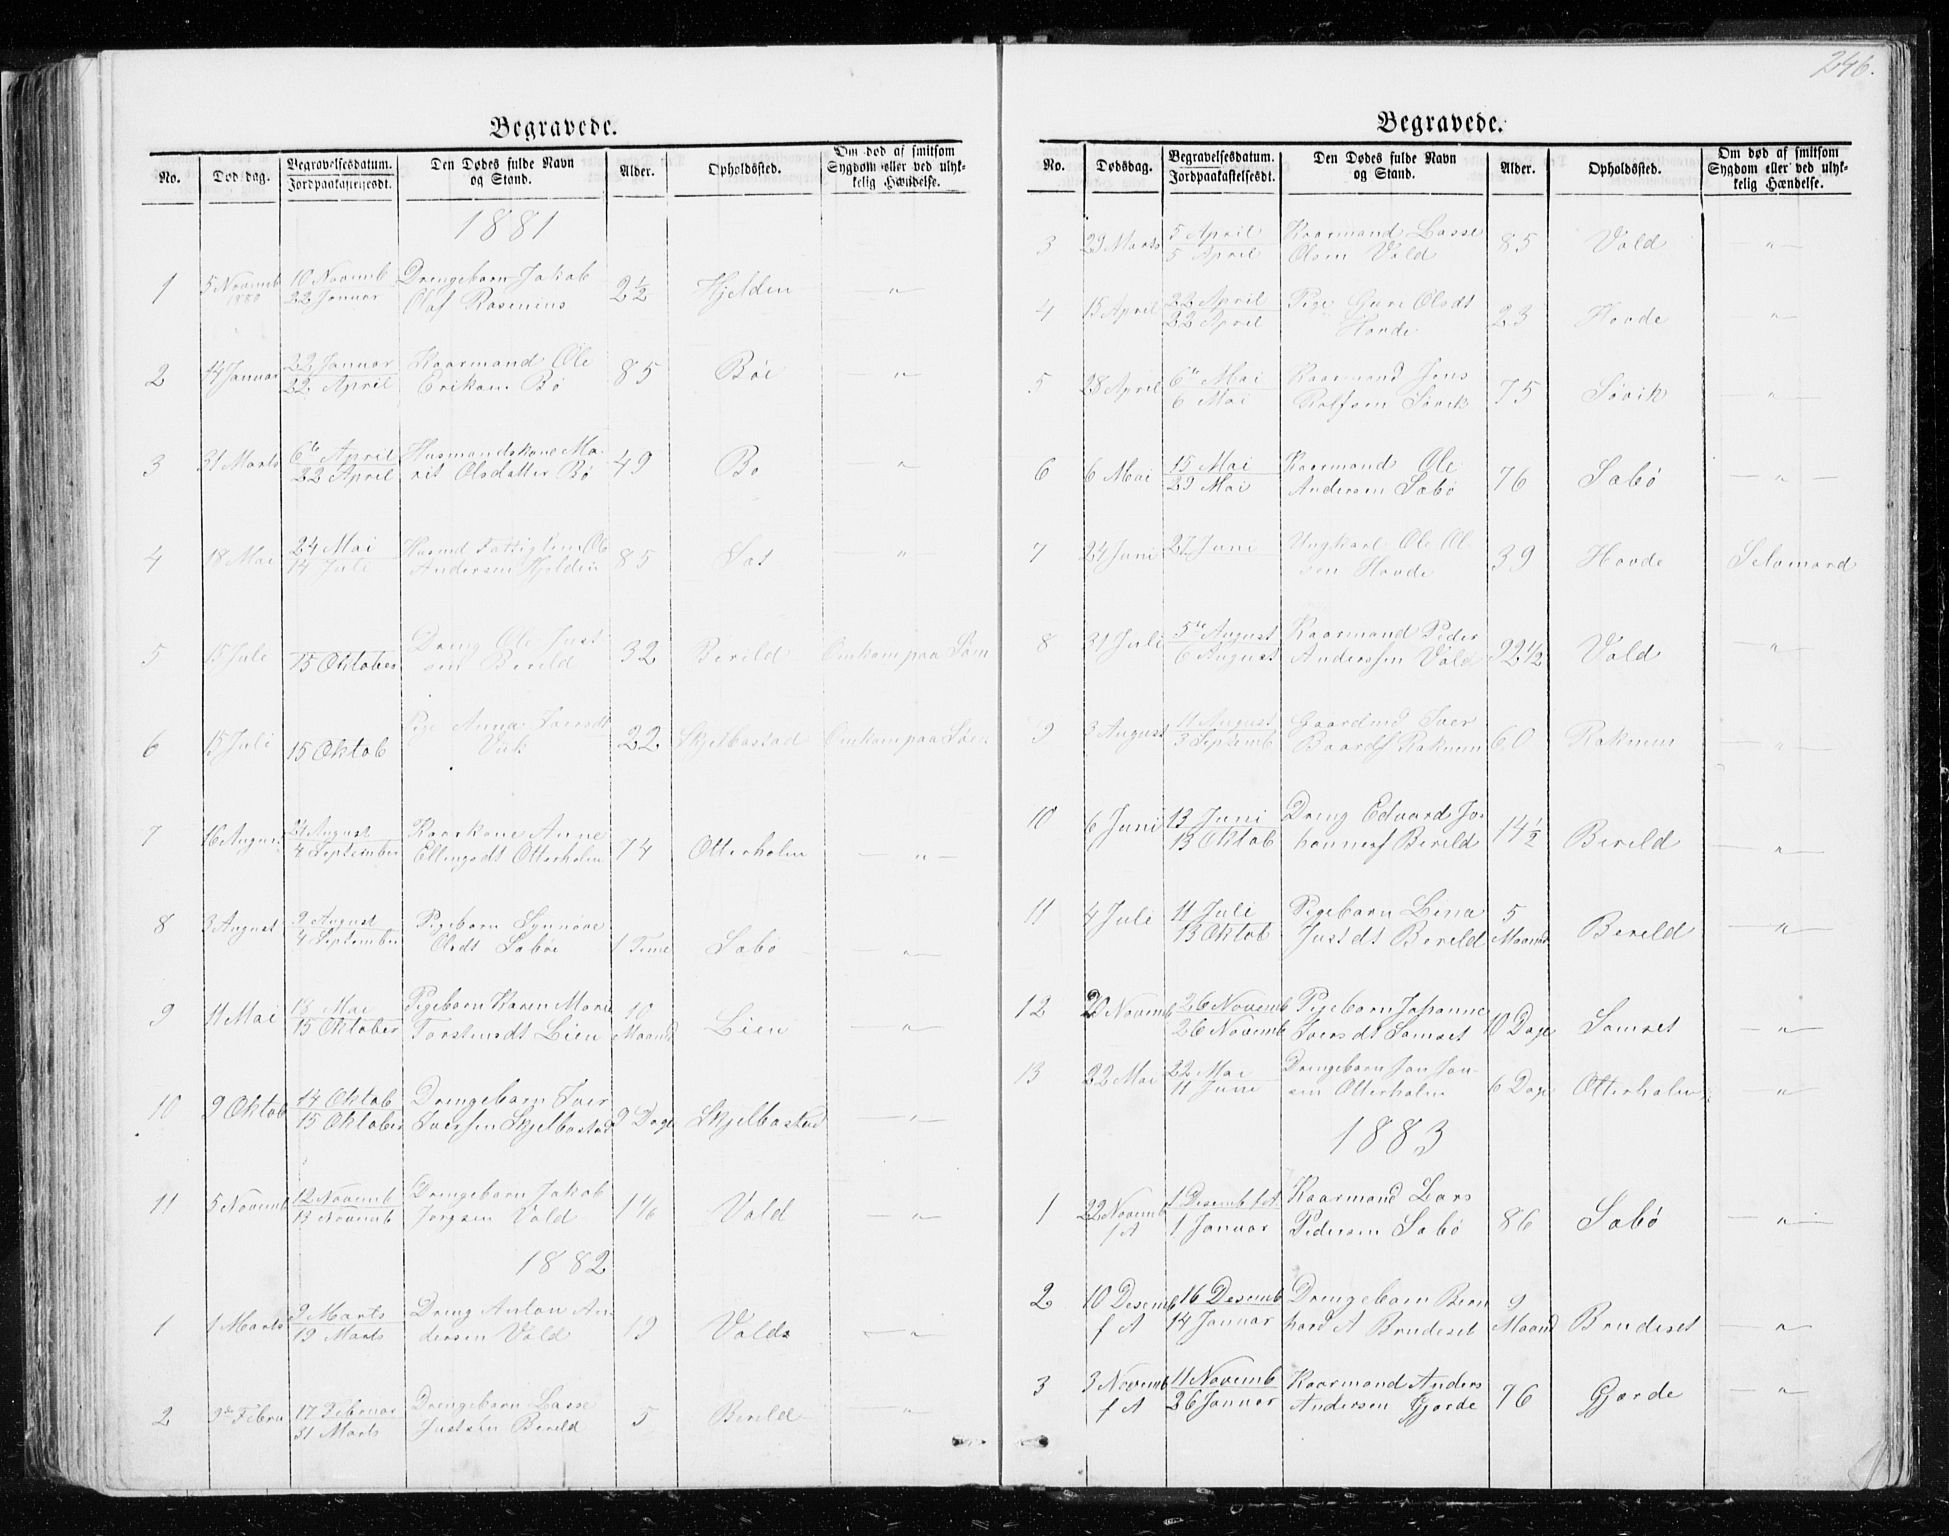 246.
Begravede.
No. Dødsdag. Begravelsesdatum. Jordpaakastelsesdt. Den Dødes fulde Navn og Stand. Alder. Opholdssted. Om død af smitsom Sygdom eller ved ulykkelig Hændelse.
1881
1 5 Novemb 1880 10 Novemb 22 Januar Drengebarn Jakob Olaf Rosenius 2½ Hjelden — " —
2 14 Januar 22 Januar 22 April Kaarmand Ole Eriksen Bø 85 Böe — " —
3 31 Marts 6te April 22 April Husmandskone Marit Olsdatter Bø 49 Bo — " —
4 18 Mai 24 Mai 14 Juli Andersen Hjelden 85 — " —
5 15 Juli 15 Oktober Dreng Ole Justsen Berild 32 Berild Omkom paa Søen
6 15 Juli 15 Oktob Pige Anna Iversdt Viik 22 Skjelbostad Omkom paa Søen
7 16 August 21 August 4 September Kaarkone Anne Ellingsdt Otterholm 74 Otterholm — " —
8 3 August 9 August 4 September Pigebarn Synnøve Olsdt Saböe 1 Time Sabö — " —
9 11 Mai 18 Mai 15 Oktober Pigebarn Karen Marie Torstensdt Lien 10 Maaned Lien — " —
10 9 Oktob 14 Oktob 15 Oktober Drengebarn Iver Iversen Skjelbostad 2 Dage Skjelbostad — " —
11 5 Novemb 12 Novemb 13 Novemb Drengebarn Jakob Jorgsen Vold 1 1/6 Vold — " —
1882
1 1 Marts 9 Marts 19 Marts Dreng Anton Andersen Vold 19 Volds — " —
2 9de Febru 17 Februar 31 Marts Drengebarn Lasse Justsen Berild 5 Berild — " —
Begravede.
No. Dødsdag. Begravelsesdatum. Jordpaakastelsesdt. Den Dødes fulde Navn og Stand. Alder. Opholdssted. Om død af smitsom Sygdom eller ved ulykkelig Hændelse.
3 29 Marts 5 April 5 April Kaarmand Lasse Olsen Vold 85 Vold — " —
4 15 April 22 April 22 April Pige Guri Olsdt Hovde 23 Hovde — " —
5 28 April 6te Mai 6 Mai Kaarmand Jens Rolfsen Sövik 75 Søvik — " —
6 6 Mai 15 Mai 29 Mai Kaarmand Ole Andersen Sabø 76 Sabø — " —
7 24 Juni 27 Juni Ungkarl Ole Olsen Hovde 39 Hovde Selvmord
8 31 Juli 5te August 6 August Kaarmand Peder Anderssen Vold 92½ Vold — " —
9 3 August 11 August 3 Septemb Gaardmd Iver Baards Raknem 60 Raknem — " —
10 6 Juni 13 Juni 13 Oktob Dreng Edvard Johannes Berild 14½ Berild — " —
11 4 Juli 11 Juli 13 Oktob Pigebarn Lina Justdt Berild 5 Maaned Berild — " —
12 20 Novemb 26 Novemb 26 Novemb Pigebarn Johanne Iversdt Samset 10 Dage Samset — " —
13 22 Mai 22 Mai 11 Juni Drengebarn Jon Jonsen Otterholm 6 Dage Otterholm — " —
1883
1 22 Novemb f A 1 Desemb f A 1 Januar Kaarmand Lars Pedersen Sabø 86 Sabø — " —
2 10 Desemb f A 16 Desemb 14 Januar Drengebarn Bernhard A Brudeset 9 Maaned Brudeset — " —
3 3 Novemb f A 11 Novemb 26 Januar Kaarmand Anders Andersen Gjørde 76 Gjørde — " —